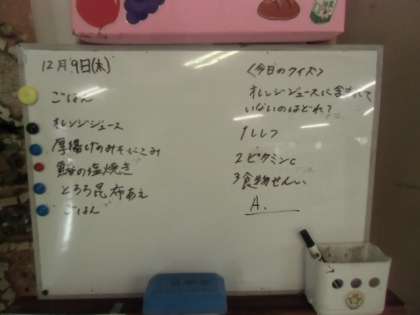 12月9日(木)
ごはん
オレンジジュース
厚揚げのみそにこみ
の塩焼き
とろろ昆布あえ
ごはん
<今日のクイズ>
オレンジジュースに含まれて
いないのはどれ?
1
2ビタミンC
3食物せんい
A.